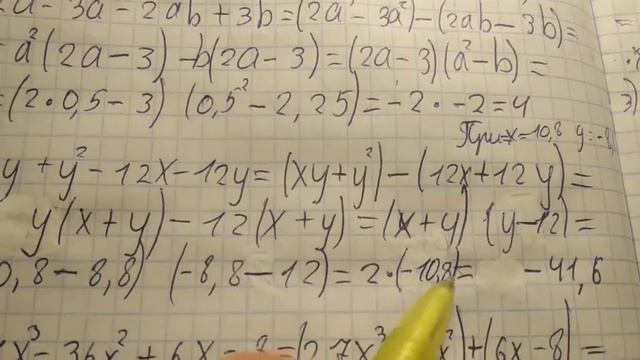 - 3a - 2ab + 3b = (2a - 3a²) - (2ab - 3b) =
= a² (2a - 3) - b(2a - 3) = (2a - 3)(a² - b) =
= (2 · 0,5 - 3) (0,5² - 2,25) = -2 · -2 = 4
При x = 10,8 y = -8,
y + y² - 12x - 12y = (xy + y²) - (12x + 12y) =
y(x + y) - 12(x + y) = (x + y) (y - 12) =
0,8 - 8,8) (-8,8 - 12) = 2 · (-10,8) = -41,6
x³ - 36x² + 6x - 8 = (27x³ x²) + (6x - 8) =